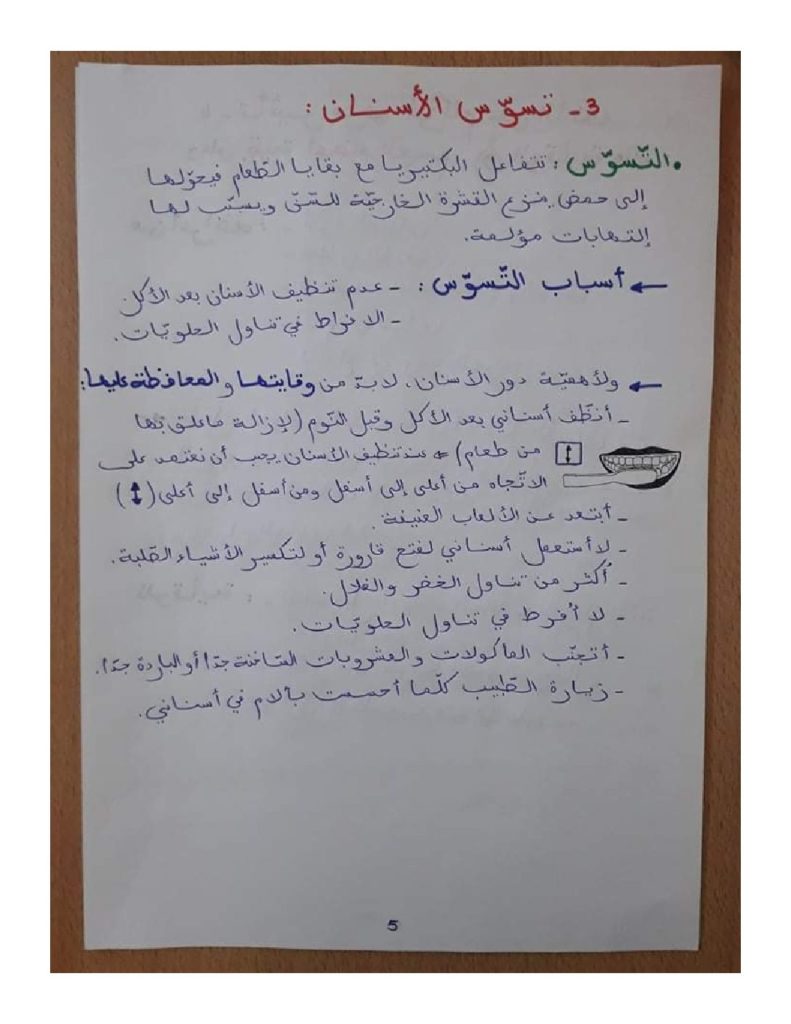 3- تسوّس الأسنان :
• التّسوّس : تتفاعل البكتيريا مع بقايا الطّعام فيحوّلها
إلى حمض ينزع القشرة الخارجيّة للسّنّ ويسبّب لها
إلتهابات مؤلمة.
← أسباب التّسوّس : - عدم تنظيف الأسنان بعد الأكل
- الافراط في تناول الحلويّات.
← ولأهميّة دور الأسنان، لابدّ من وقايتها والمحافظة عليها:
- أنظّف أسناني بعد الأكل وقبل النّوم (لإزالة ماعلق بها
من طعام) * عند تنظيف الأسنان يجب أن نعتمد على
الاتّجاه من أعلى إلى أسفل ومن أسفل إلى أعلى (↕)
- أبتعد عن الألعاب العنيفة.
- لا أستعمل أسناني لفتح قارورة أو لتكسير الأشياء الصّلبة.
- أُكثر من تناول الخضر والغلال.
- لا أُفرط في تناول الحلويّات.
- أتجنّب المأكولات والمشروبات السّاخنة جدّا أو الباردة جدّا.
- زيارة الطّبيب كلّما أحسست بآلام في أسناني.
5